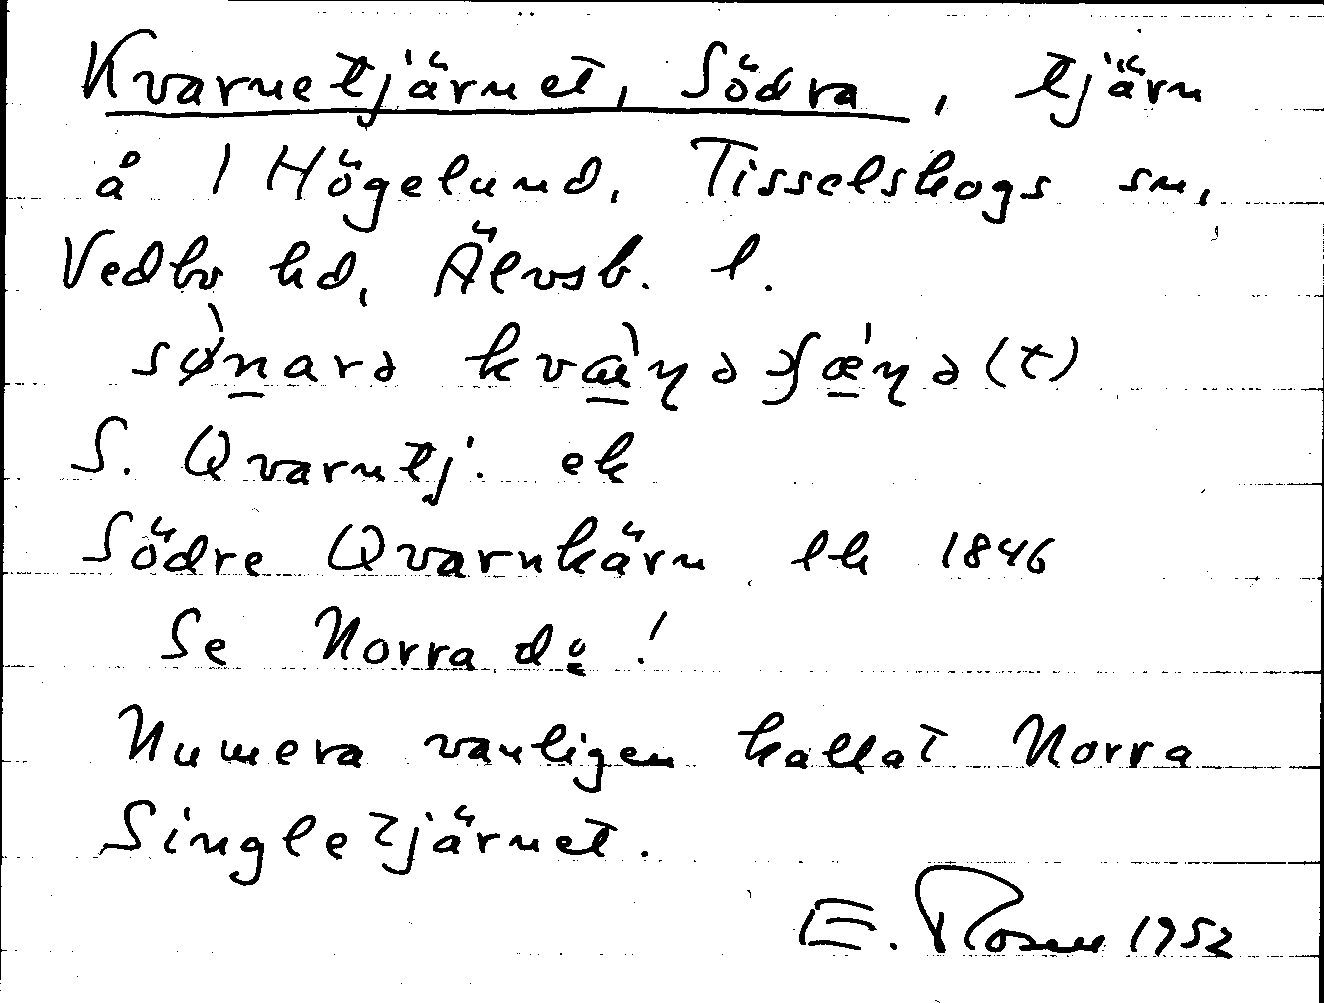 Kvarnetjärnet, Södra, tjärn
å 1 Högelund, Tisselskogs sn,
Vedbo hd, Älvsb. l.
S. Qvarntj. ek
Södre Qvarnkärn lk 1846
Se Norra d:o!
Numera vanligen kallat Norra
Singletjärnet.
E. Rosen 1952